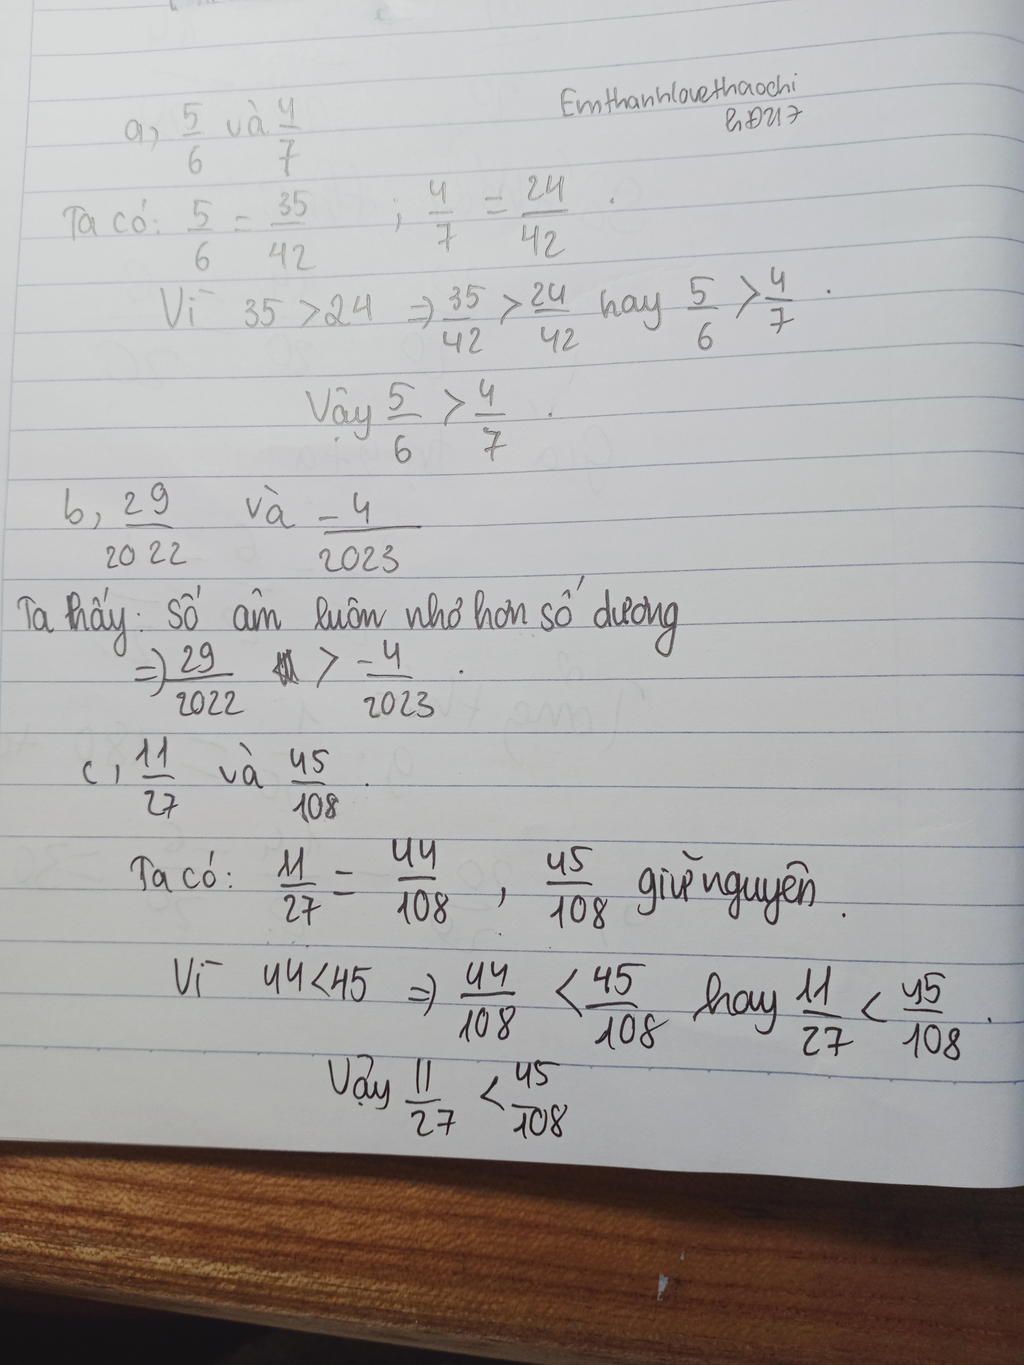 Emthanhlovethaochi
a, 5/6 và 4/7
Ta có: 5/6 = 35/42 ; 4/7 = 24/42 .
Vì 35 > 24 => 35/42 > 24/42 hay 5/6 > 4/7 .
Vậy 5/6 > 4/7 .
b, 29/2022 và -4/2023
Ta thấy: Số âm luôn nhỏ hơn số dương
=> 29/2022 > -4/2023 .
c, 11/27 và 45/108 .
Ta có: 11/27 = 44/108 , 45/108 giữ nguyên .
Vì 44 < 45 => 44/108 < 45/108 hay 11/27 < 45/108 .
Vậy 11/27 < 45/108